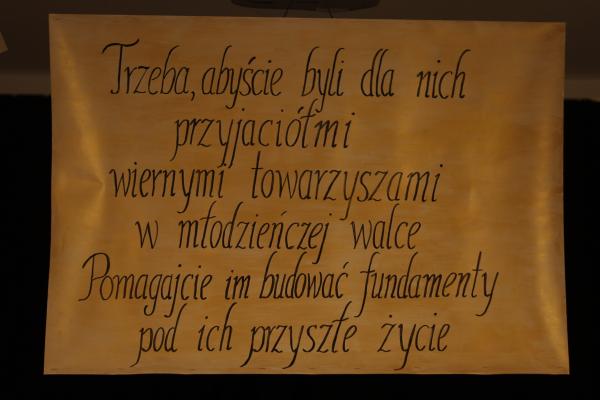 Trzeba, abyście byli dla nich
przyjaciółmi
wiernymi towarzyszami
w młodzieńczej walce
Pomagajcie im budować fundamenty
pod ich przyszłe życie